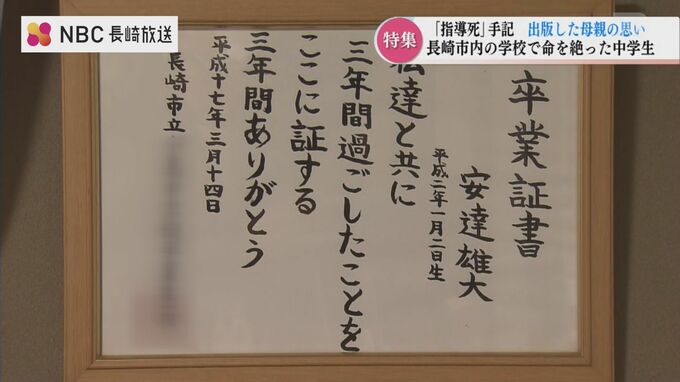 NBC 長崎放送
特集
「指導死」手記 出版した母親の思い
長崎市内の学校で命を絶った中学生
卒業証書
安達雄大
平成二年一月二日生
私達と共に
三年間過ごしたことを
ここに証する
三年間ありがとう
平成十七年三月十四日
長崎市立